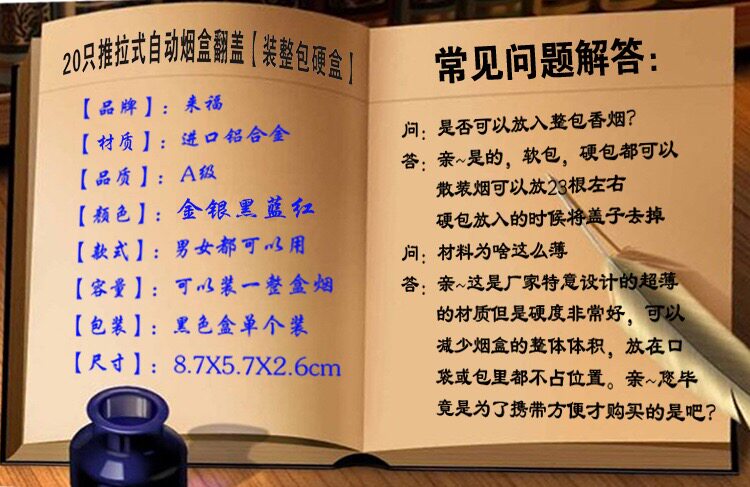 20只推拉式自动烟盒翻盖【装整包硬盒】
【品牌】：来福
【材质】：进口铝合金
【品质】：A级
【颜色】：金银黑蓝红
【款式】：男女都可以用
【容量】：可以装一整盒烟
【包装】：黑色盒单个装
【尺寸】：8.7X5.7X2.6cm
常见问题解答：
问：是否可以放入整包香烟？
答：亲~是的，软包，硬包都可以
散装烟可以放23根左右
硬包放入的时候将盖子去掉
问：材料为啥这么薄
答：亲~这是厂家特意设计的超薄
的材质但是硬度非常好，可以
减少烟盒的整体体积，放在口
袋或包里都不占位置。亲~您毕
竟是为了携带方便才购买的是吧？